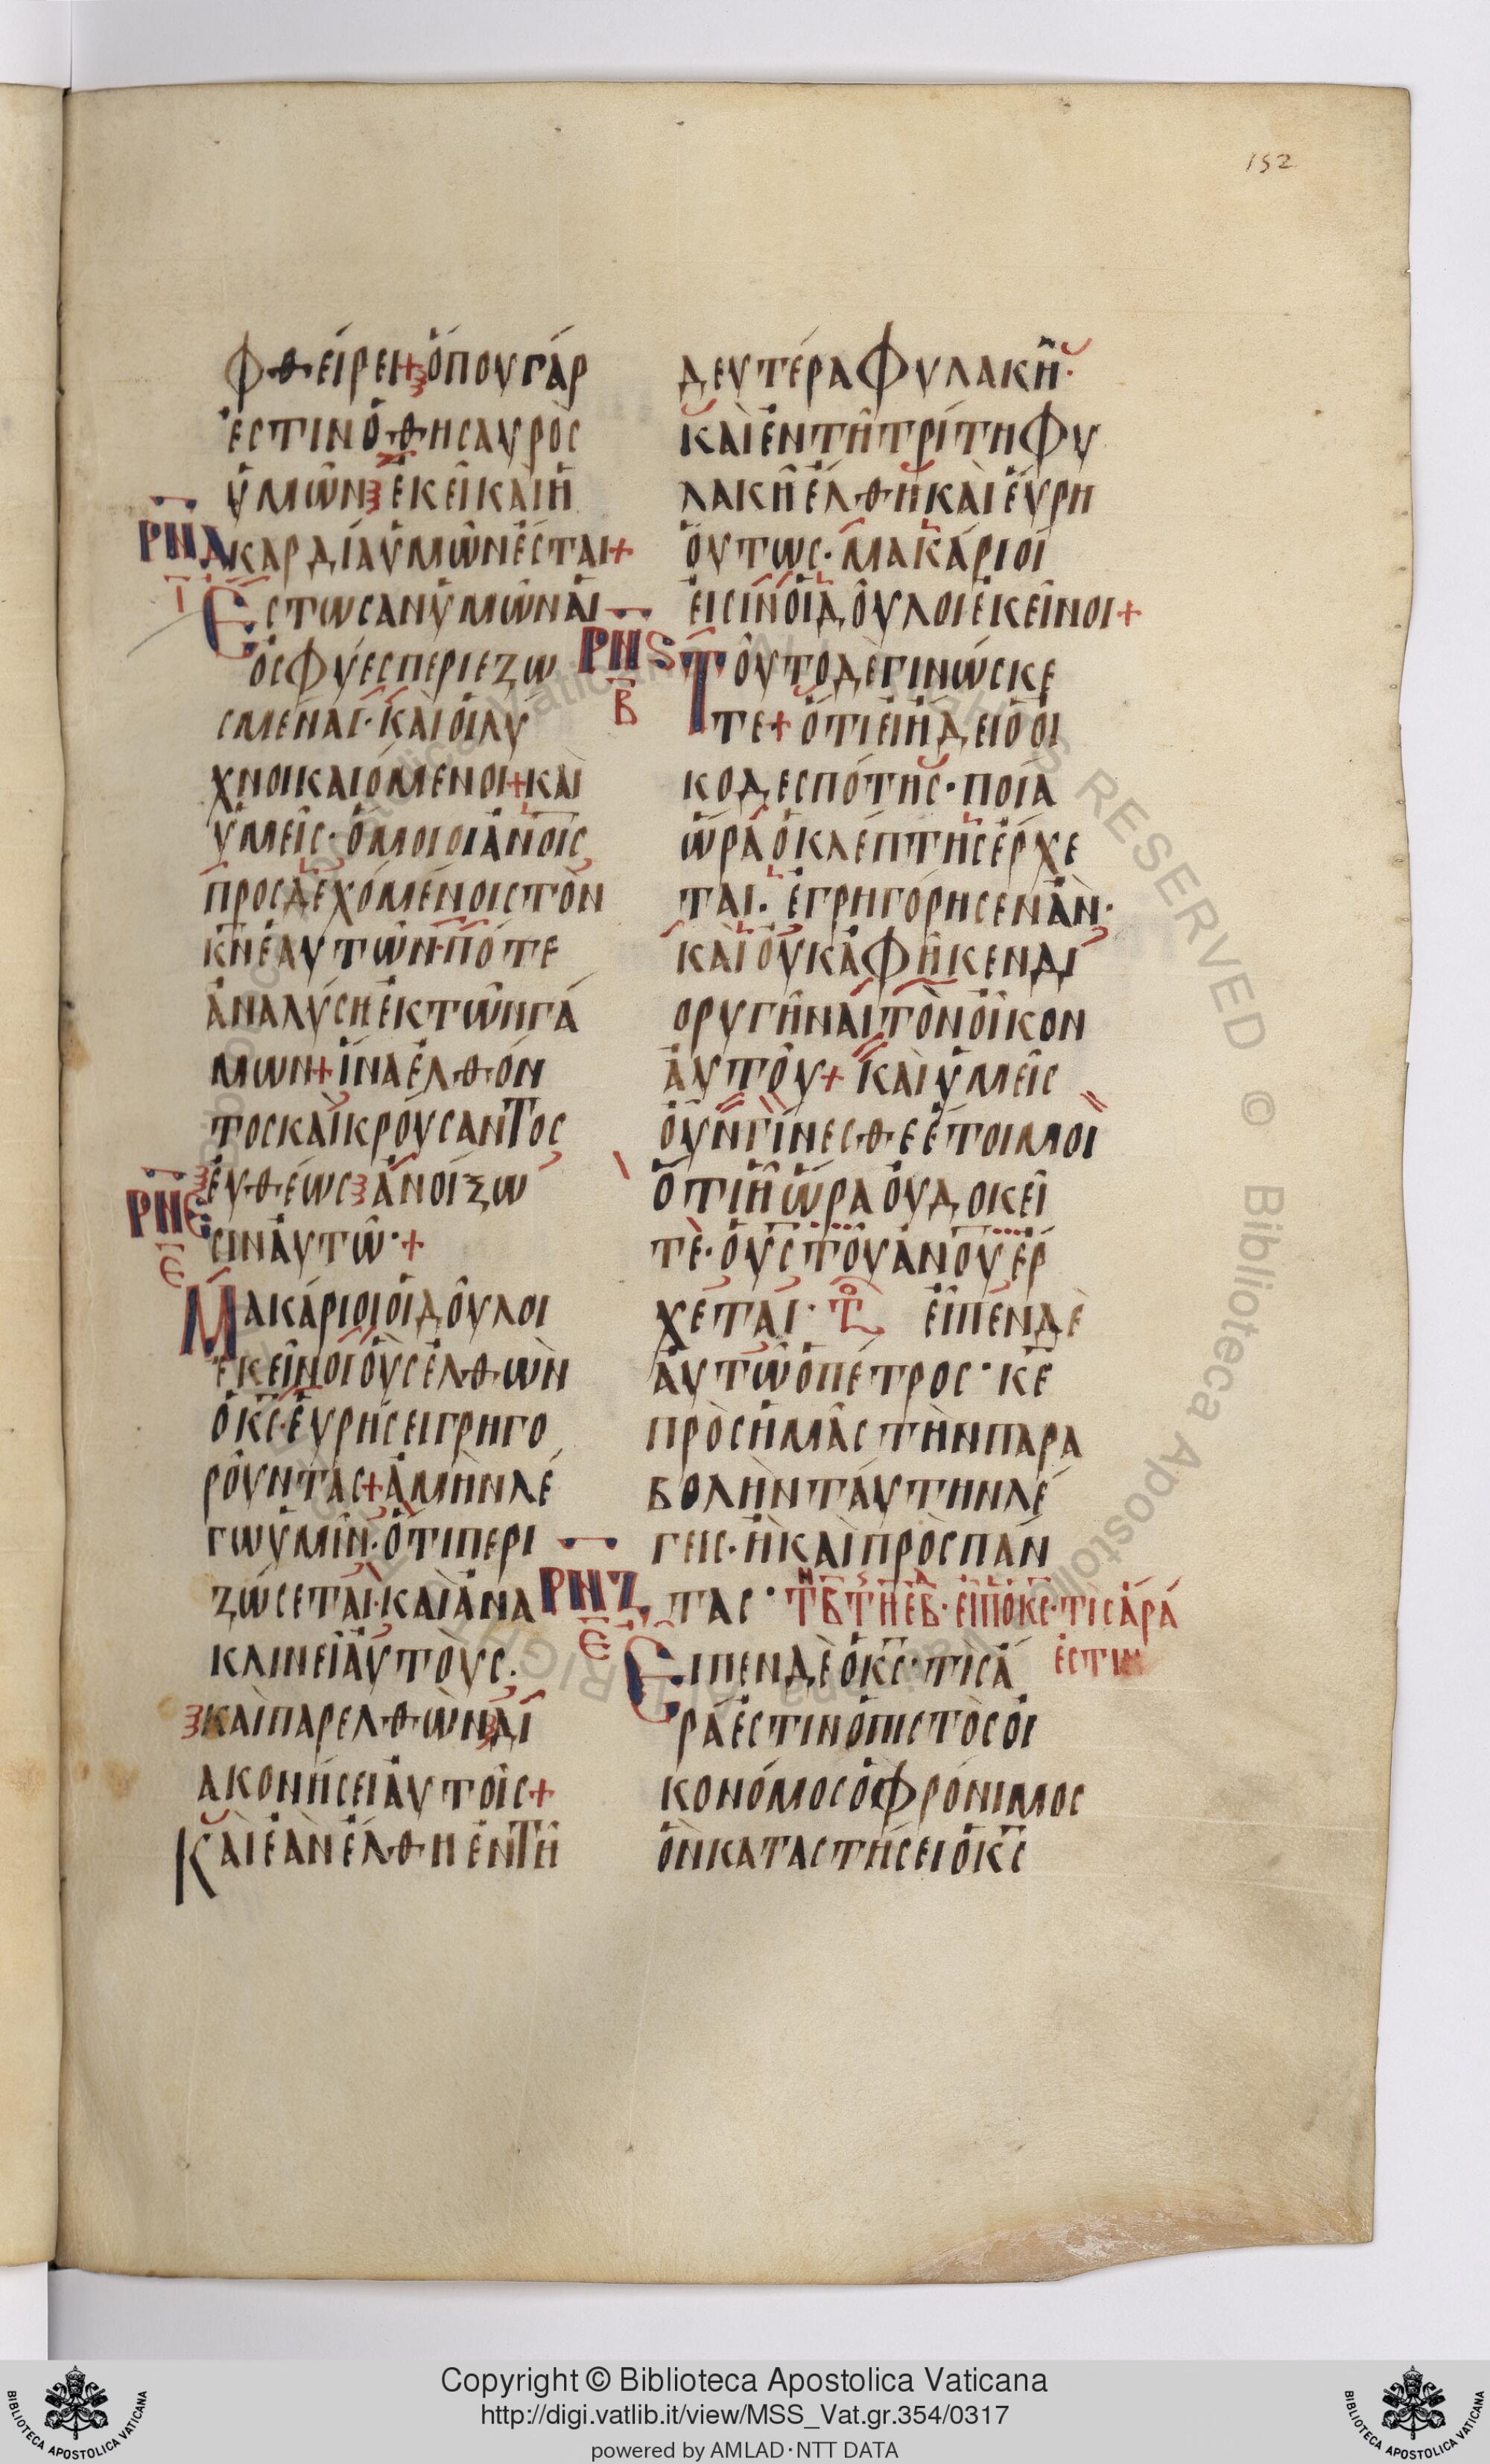 152
φθείρει+ὅπουγάρ
ἐστινὁθησαυρὸς
ὑμῶνἐκεῖκαιἡ
ΡΝΔ
καρδίαὑμῶνἔσται+
Ι
Εστωσανὑμῶναἱ
ὀσφύεσπεριεζω
σμέναι·καὶοἱλύ
χνοικαιόμενοι+καὶ
ὑμεῖς·ὅμοιοιἀνοῖς
προσδεχόμένοιςτὸν
κνἑαυτῶν·πότε
ἀναλύσηἐκτῶνγά
μων+ἵναἐλθόν
τοςκαὶκρούσαντος
ἐυθέωςἀνοίξω
ΡΝΕ
σινἀυτῶ·+
Ε
Μακάριοιοἱδοῦλοι
ἐκεῖνοιοὓςἐλθὼν
ὁκς·ἑυρήσειγρηγο
ροῦντας+ἀμὴνλέ
γωὑμῖν·ὅτιπερι
ζώσεται·καὶἀνα
κλινεῖἀυτοὺς·
καὶπαρελθὼνδι
ακονήσειἀυτοῖς+
Καὶἐὰνἔλθηἐντῆ
δευτέραφυλακῆ·
καὶἐντῆτρίτηφυ
λακῆἔλθηκαὶἕυρη
ὅυτως·μακάριοί
ἐισινοἱδοῦλοιἐκεῖνοι+
ΡΝϚ
Τοῦτοδὲγινώσκε
Β
τε+ὅτιεἰἤδειὁοἰ
κοδεσπότης·ποία
ὥραὁκλέπτηςέρχε
ται·ἐγρηγόρησενἂν·
καὶοὐκἀφῆκενδι
ορυγῆναιτὸνοἶκον
ἀυτοῦ+καὶὑμεῖς
οὖνγίνεσθεἕτοιμοι
ὅτιἧὥραοὐδοκεῖ
τὲ·ὁυςτοῦἀνουἔρ
χεται·Τλ εἶπενδὲ
ἀυτῶὁπέτρος·κε
πρὸσἡμᾶςτὴνπαρα
βολὴνταύτηνλέ
γεις·ἢκαὶπρὸςπάν
ΡΝΖ
τας·
Ε
Ειπενδὲὁκς·τίςἄ
ράἐστινὁπιστὸςοἰ
κονόμοςὁφρόνιμος
ὃνκαταστήσειὁκς
Copyright © Biblioteca Apostolica Vaticana
http://digi.vatlib.it/view/MSS_Vat.gr.354/0317
powered by AMLAD·NTT DATA